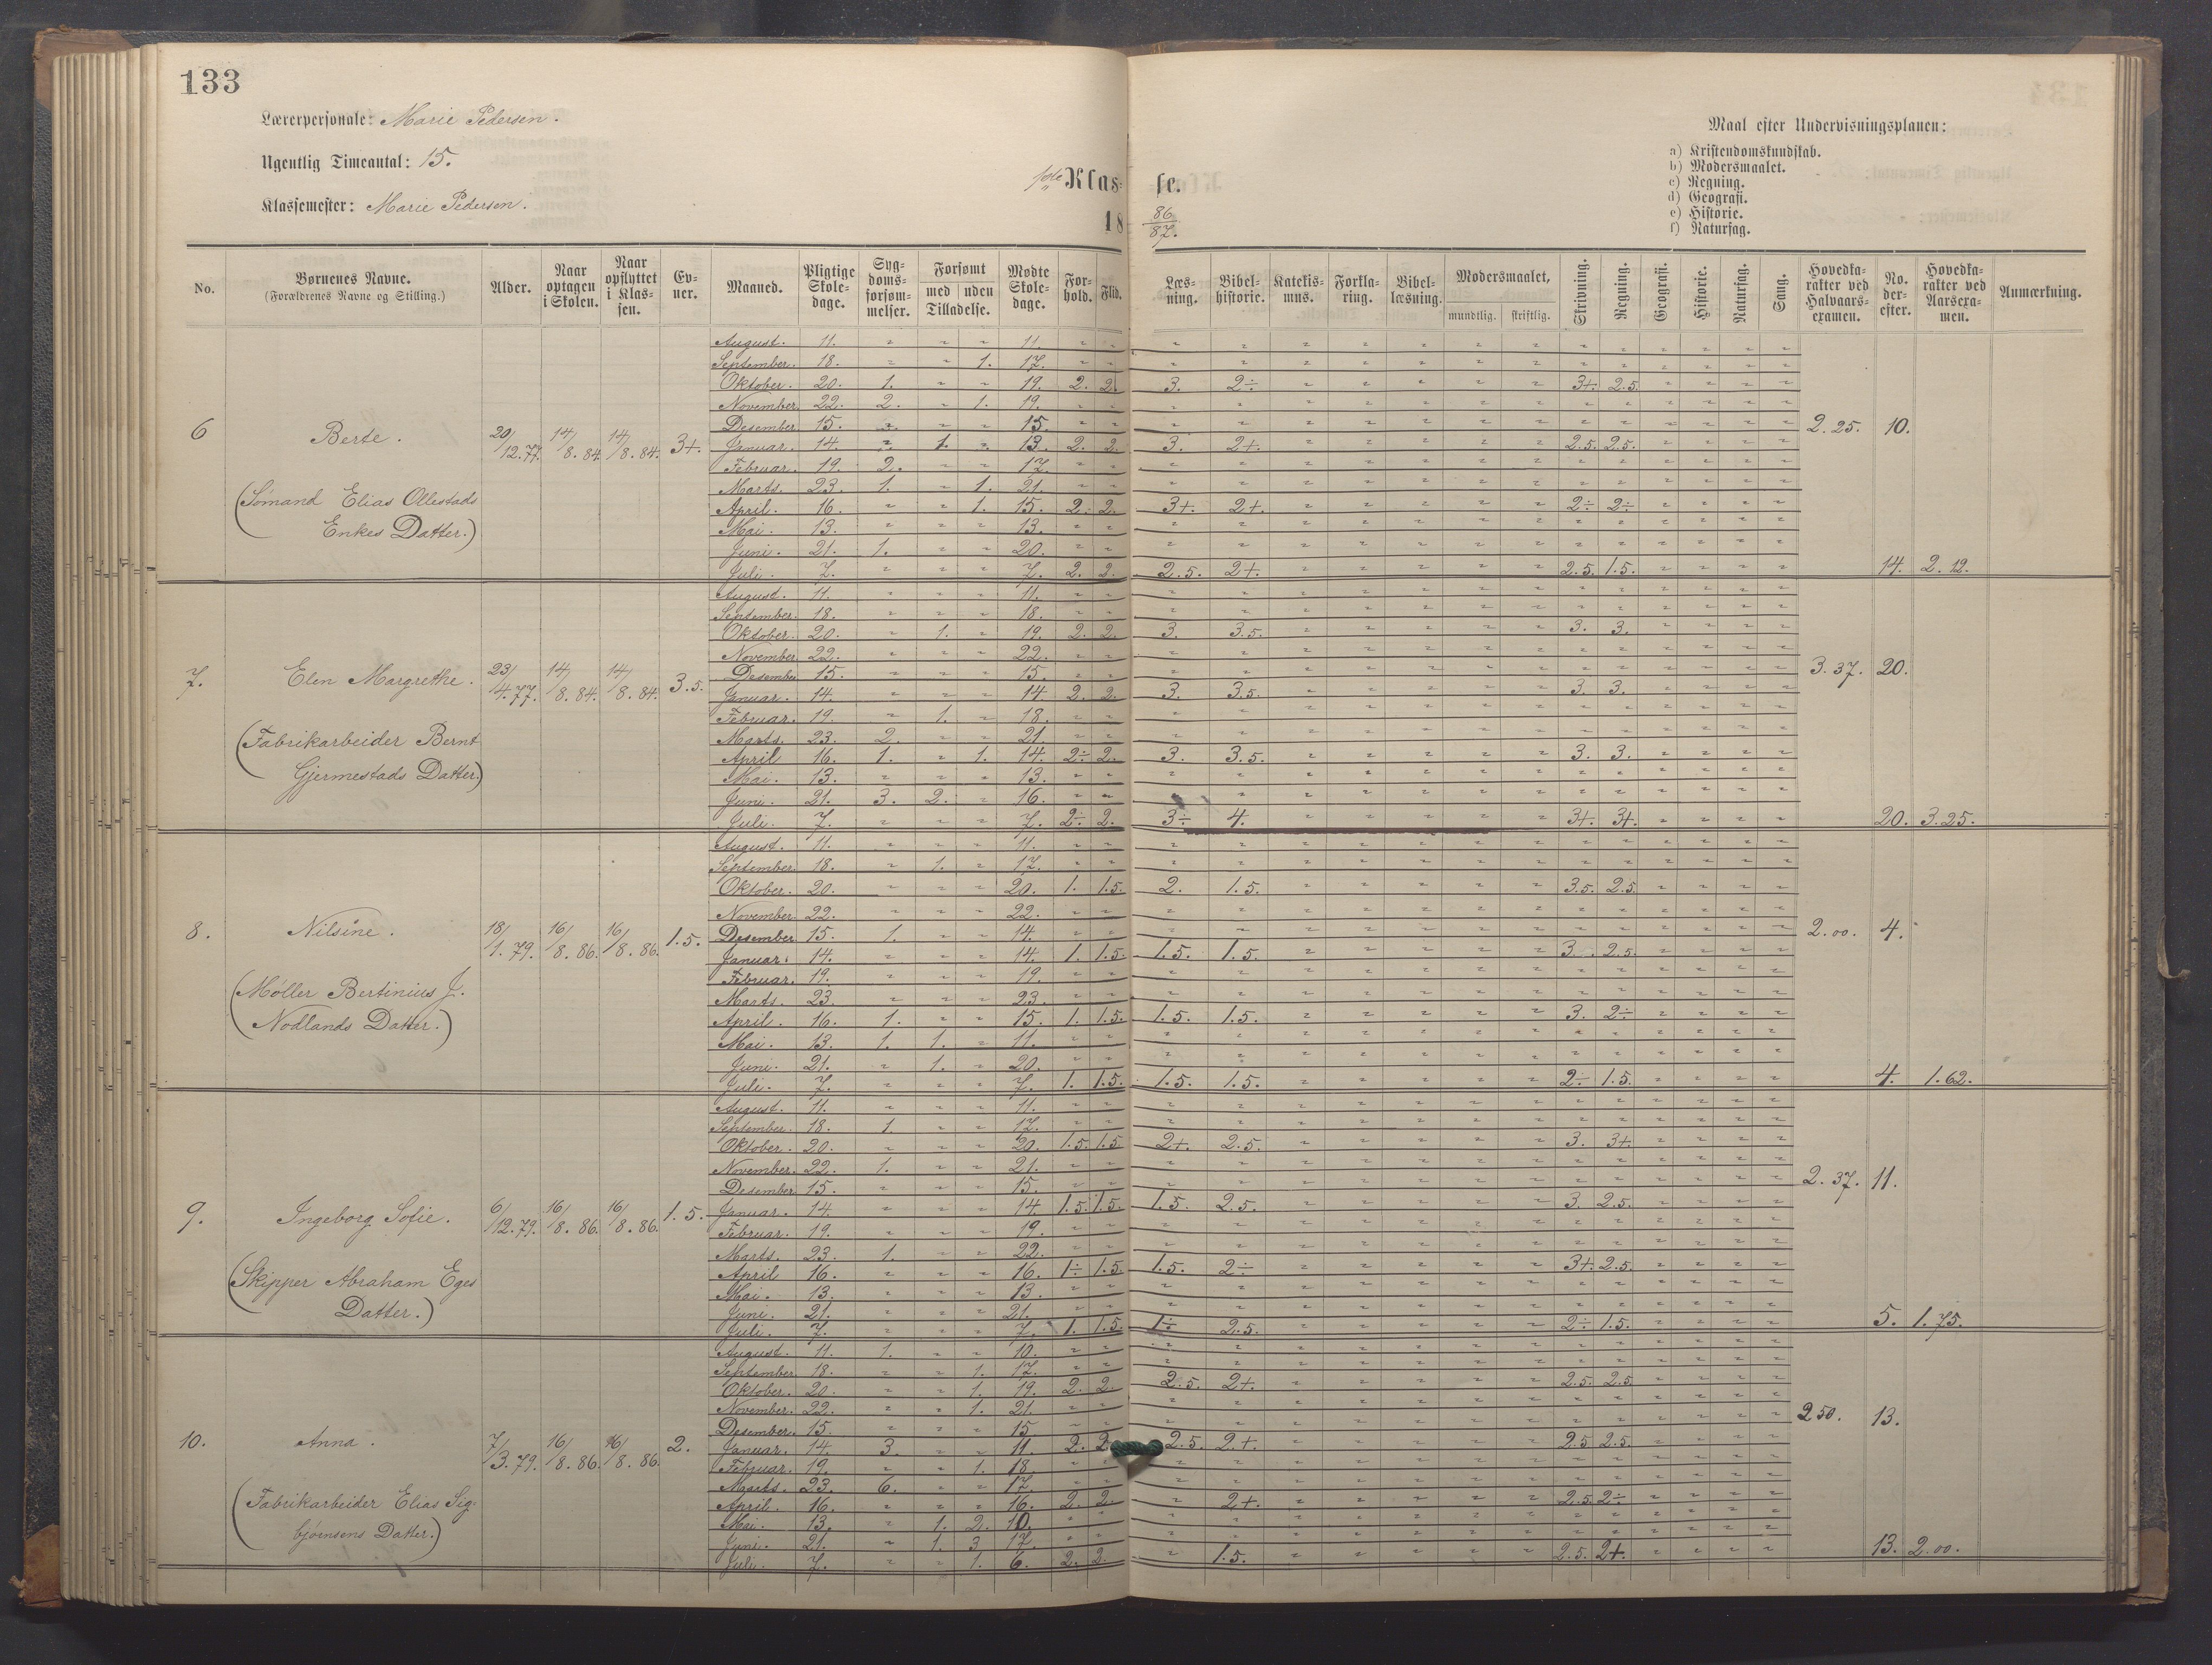 133
Lærerpersonale: Marie Pedersen.
Ugentlig Timeantal: 15.
Klassemester: Marie Pedersen.
1ste Klas- se.
18 86/87.
Maal efter Undervisningsplanen:
a) Kristendomskundskab.
b) Modersmaalet.
c) Regning.
d) Geografi.
e) Historie.
f) Naturfag.
No. | Børnenes Navne. (Forældrenes Navne og Stilling.) | Alder. | Naar optagen i Skolen. | Naar opflyttet i Klassen. | Evner. | Maaned. | Pligtige Skoledage. | Sygdomsforsømmelser. | Forsømt med uden Tilladelse. | Mødte Skoledage. | Forhold. | Flid. | Læsning. | Bibelhistorie. | Katekismus. | Forklaring. | Bibellæsning. | Modersmaalet, mundtlig. skriftlig. | Skrivning. | Regning. | Geografi. | Historie. | Naturfag. | Sang. | Hovedkarakter ved Halvaarsexamen. | No. derefter. | Hovedkarakter ved Aarsexamen. | Anmærkning.
6 Berte. 20/12.77. 14/8.84. 14/8.84. 3+. 2.25. 10.
(Sømand Elias Ollestads
Enkes Datter.)
August. 11. " " " 11. " "
September. 18. " " 1. 17. " "
Oktober. 20. 1. " " 19. 2. 2. 3. 2÷ 3+. 2.5.
November. 22. 2. " 1. 19. " "
Desember. 15. " " " 15. " "
Januar. 14. " 1. " 13. 2. 2. 3. 2+. 2.5. 2.5.
Februar. 19. 2. " " 17. " "
Marts. 23. 1. " 1. 21. " "
April. 16. " " 1. 15. 2. 2. 3+. 2+. 2÷ 2÷
Mai. 13. " " " 13. " "
Juni. 21. 1. " " 20. " "
Juli. 7. " " " 7. 2. 2. 2.5. 2+. 2.5. 1.5. 14. 2.12.
7. Elen Margrethe. 23/4.77. 14/8.84. 14/8.84. 3.5. 3.37. 20.
(Fabrikarbeider Bernt
Gjermestads Datter.)
August. 11. " " " 11. " "
September. 18. " " " 18. " "
Oktober. 20. " 1. " 19. 2. 2. 3. 3.5. 3. 3.
November. 22. " " " 22. " "
Desember. 15. " " " 15. " "
Januar. 14. " " " 14 2. 2. 3. 3.5. 3. 3.
Februar. 19. " 1. " 18. " "
Marts. 23. 2. " " 21. " "
April 16. 1. " 1. 14. 2÷ 2. 3. 3.5. 3. 3.
Mai. 13. " " " 13. " "
Juni. 21. 3. 2. " 16. " "
Juli. 7. " " " 7. 2÷ 2. 3÷ 4. 3+. 3+. 20. 3.25.
8. Nilsine. 18/1.79. 16/8.86. 16/8.86. 1.5. 2.00. 4.
(Møller Bertinius J.
Nodlands Datter.)
August. 11. " " " 11. " "
September. 18. " 1. " 17. " "
Oktober. 20. " " " 20. 1. 1.5. 2. 1.5. 3.5. 2.5.
November. 22. " " " 22. " "
Desember. 15. 1. " " 14. " "
Januar. 14. " " " 14. 1. 1.5. 1.5. 1.5. 3. 2.5.
Februar. 19. " " " 19. " "
Marts. 23. " " " 23. " "
April. 16. 1. " " 15. 1. 1.5. 1.5. 1.5. 3. 2÷
Mai. 13. 1. 1. " 11. " "
Juni. 21. " 1. " 20. " "
Juli. 7. " " " 7. 1. 1.5. 1.5. 1.5. 2÷ 1.5. 4. 1.62.
9. Ingeborg Sofie. 6/12.79. 16/8.86. 16/8.86. 1.5. 2.37. 11.
(Skipper Abraham Eges
Datter.)
August. 11. " " " 11. " "
September. 18. 1. " " 17. " "
Oktober. 20. " " " 20. 1.5. 1.5. 2+. 2.5. 3. 3+.
November. 22. 1. " " 21. " "
Desember 15. " " " 15. " "
Januar. 14. " " " 14. 1.5. 1.5. 1.5. 2.5. 3. 2.5.
Februar. 19. " " " 19. " "
Marts. 23. 1. " " 22. " "
April 16. " " " 16. 1÷ 1.5. 1.5. 2÷ 3+. 2.5.
Mai. 13. " " " 13. " "
Juni. 21. " " " 21. " "
Juli. 7. " " " 7. 1. 1.5. 1÷ 2.5. 2÷ 1.5. 5. 1.75.
10. Anna. 7/3.79. 16/8.86. 16/8.86. 2. 2.50. 13.
(Fabrikarbeider Elias Sig-
bjørnsens Datter.)
August. 11. 1. " " 10. " "
September 18. " " 1. 17. " "
Oktober. 20. " " 1. 19. 2. 2. 2.5. 2+. 2.5. 2.5.
November. 22. " " 1. 21. " "
Desember. 15. " " " 15 " "
Januar. 14. 3. " " 11. 2. 2. 2.5. 2+. 2.5 2.5.
Februar. 19. " " 1. 18. " "
Marts. 23. 6. " " 17. " "
April. 16. " " " 16. 2. 2. " 2+. 2.5. 2÷
Mai. 13. " 1. 2. 10. " "
Juni. 21. " 1. 3 17. " "
Juli. 7. " " 1. 6. 2. 2. " 1.5. 2.5. 2+. 13. 2.00.